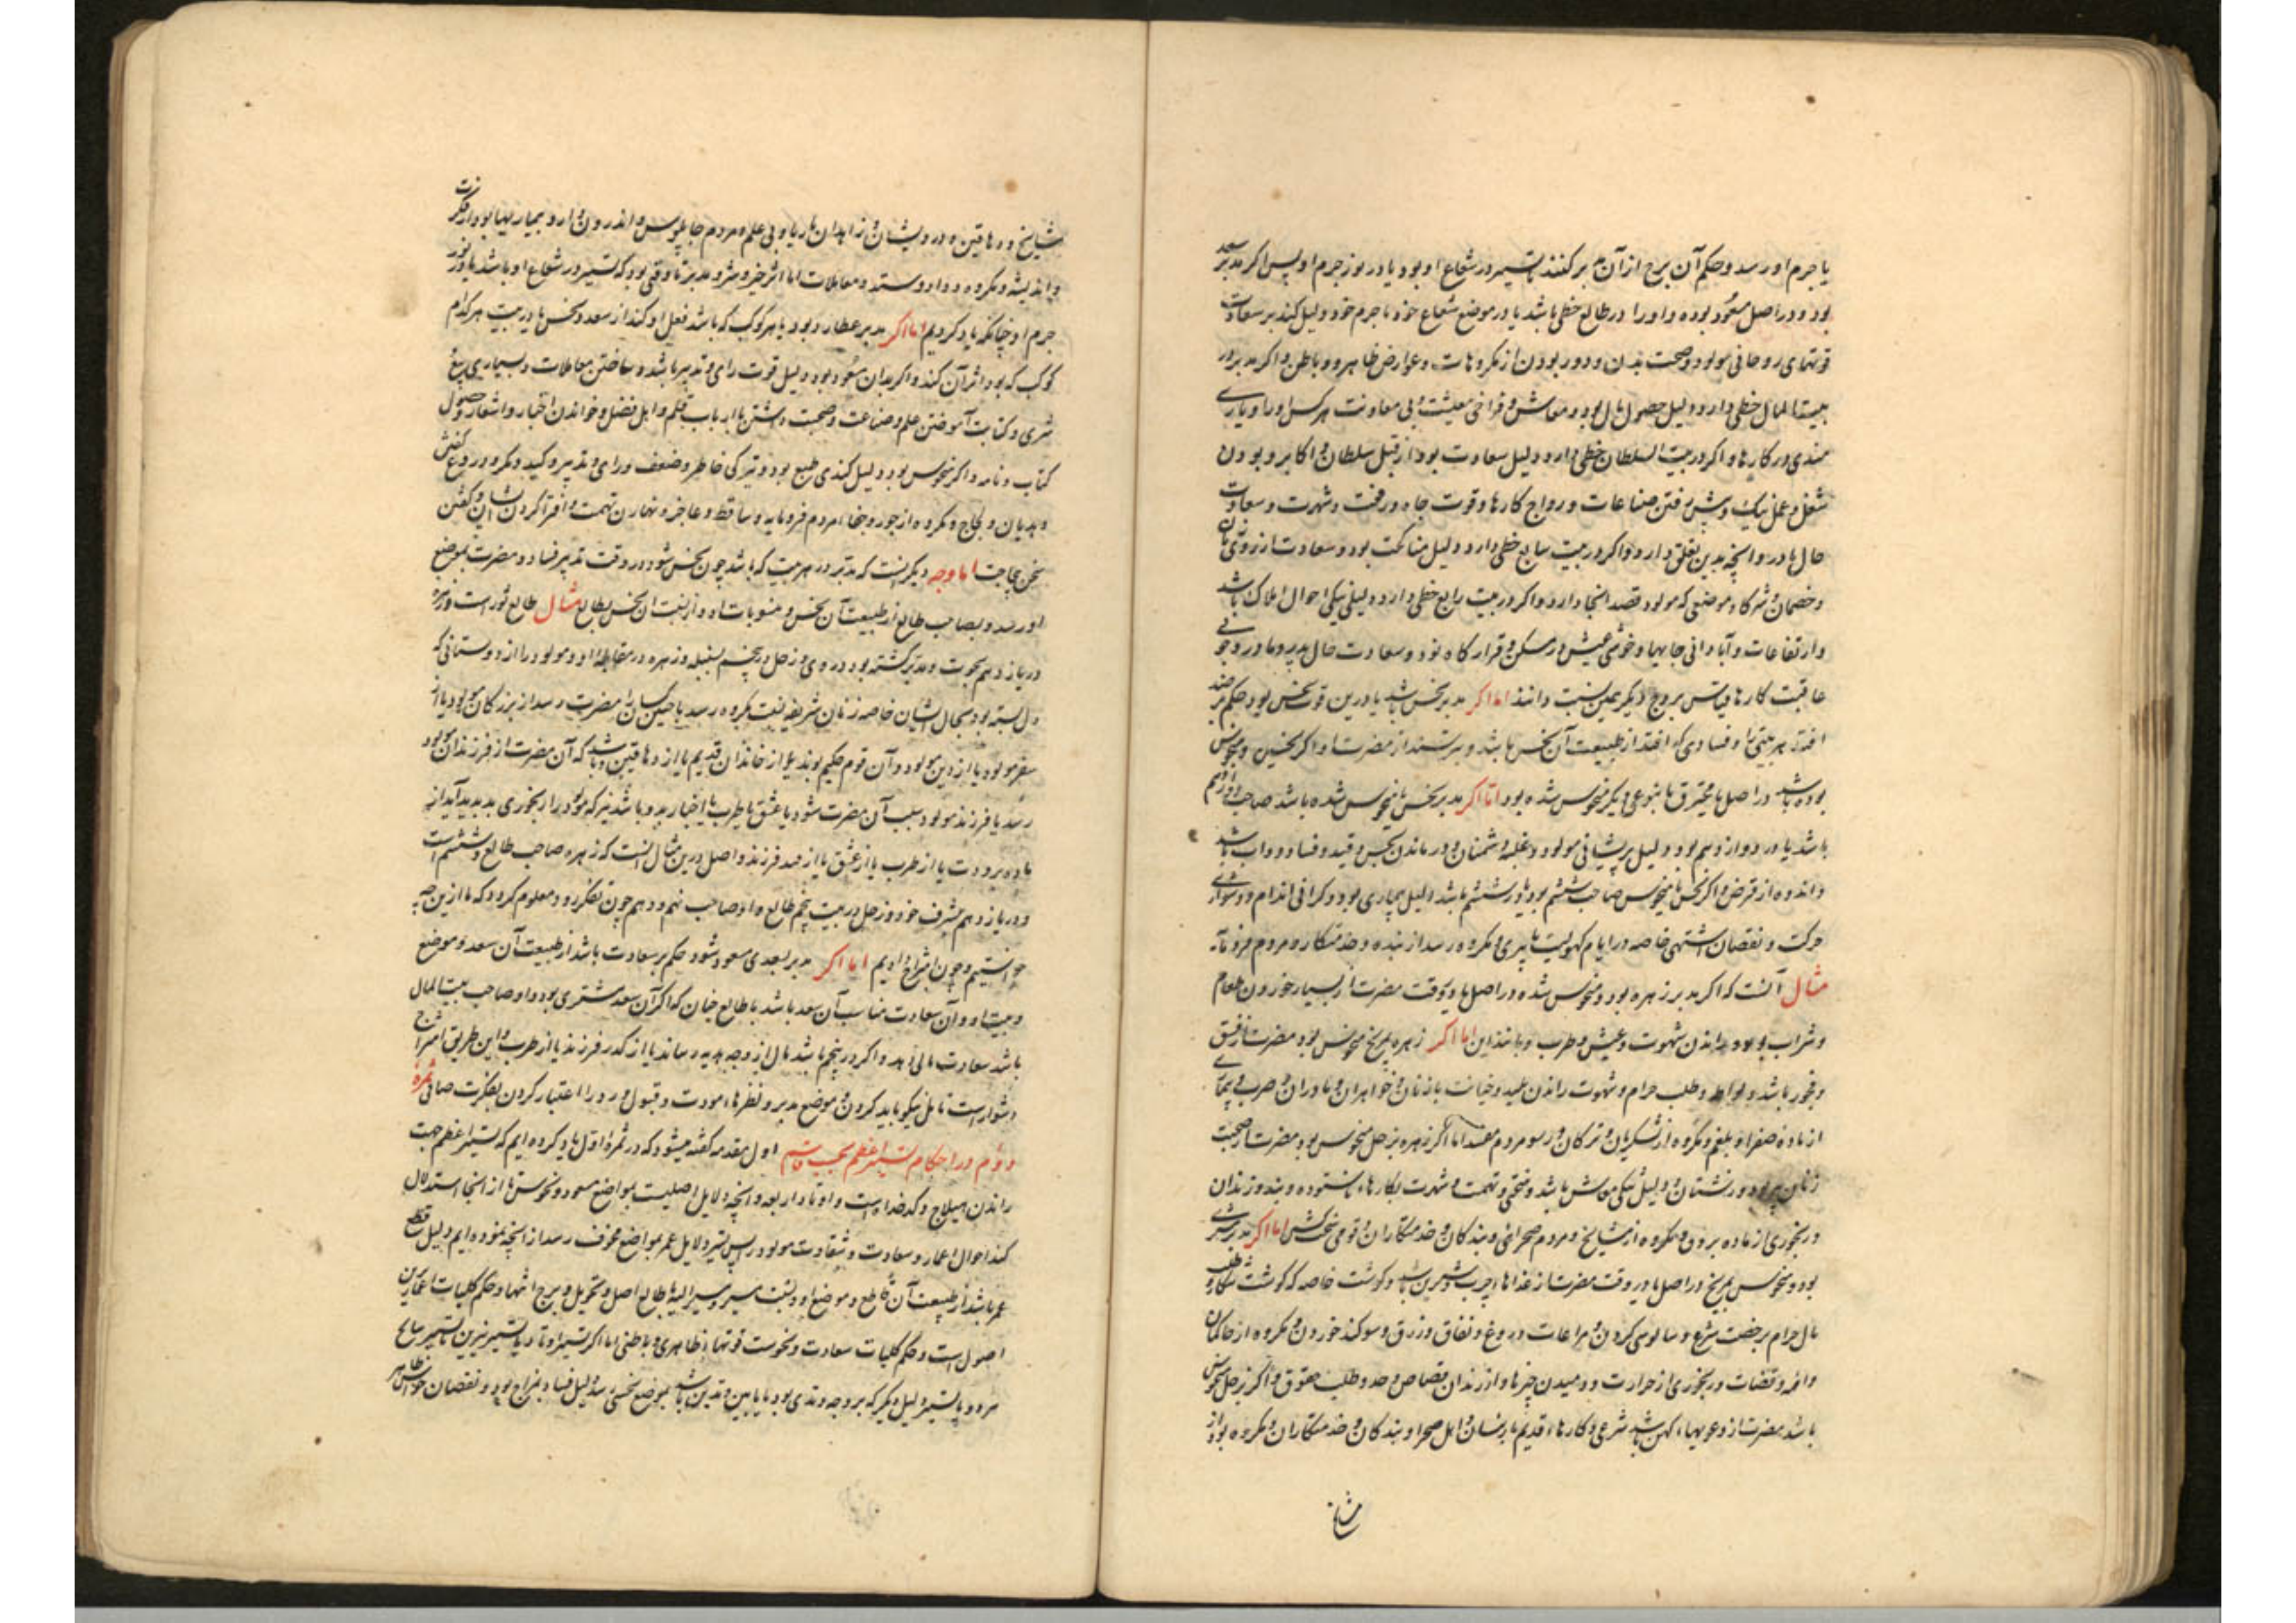 یا جرم او رسد و حکم آن برج از آن مدبر کنند تا تسییر در شعاع او بود یا در نور جرم او پس اگر مدبر سعد
بود و در اصل مسعود بوده و او را در طالع حظی باشد یا در موضع شعاع خود یا جرم خود دلیل کند بر سعادت
قوتهای روحانی مولود و صحت بدن و دور بودن از مکروهات و عوارض ظاهر و باطن و اگر مدبر در
بیت المال حظی دارد دلیل حصول مال بود و معاش و فراخی معیشت و بی معاونت هر کس او را و یاری
مندی در کارها و اگر در بیت السلطان حظی دارد دلیل سعادت بود از قبل سلطان و اکابر و بودن
شغل و عمل نیک و پیش رفتن صناعات و رواج کارها و قوت جاه و رفعت و شهرت و سعادت
حال مادر و آنچه بدین تعلق دارد و اگر در بیت سابع حظی دارد دلیل مناکحت بود و سعادت از زوج و زنان
و خصمان و شرکا و موضعی که مولود قصد آنجا دارد و اگر در بیت رابع حظی دارد دلیل نیکی احوال املاک باشد
و ارتفاعات و آبادانی جایها و خوشی عیش در مسکن و قرار گاه بود و سعادت حال پدر و مادر و خوبی
عاقبت کارها و قیاس بروج دیگر بدین نسبت دانند اما اگر مدبر نحس باشد یا درین قوت نحس بود حکم بر ضد
افتد بهر بیتی را و فسادی که افتد از طبیعت آن نحس باشد و سرشتند از مضرت او اگر نحسین و منحوس
بوده باشد در اصل یا محترق یا بنوعی دیگر منحوس شده بود اما اگر مدبر نحس یا منحوس شده باشد صاحب دوازدهم
باشد یا در دوازدهم بود دلیل پریشانی مولود و غلبه دشمنان و درماندن بحبس و قید و فساد دواب باشد
و اندوه از قرض و اگر نحس یا منحوس صاحب ششم بود یا در ششم باشد دلیل بیماری بود و گرانی اندام و دشواری
حرکت و نقصان اشتهی خاصه در ایام کهولیت یا پیری و مکروه رسد از بنده و خدمتکار و مردم فرومایه
مثال آنست که اگر مدبر زهره بود و منحوس شده در اصل یا در وقت مضرت از بسیار خوردن طعام
و شراب بود و راندن شهوت و عیش و طرب و مانند این اما اگر زهره بمریخ منحوس بود مضرت از فسق
و فجور باشد و لواطه و طلب حرام و شهوت راندن پلید و خیانت با زنان و خواهران و مادران و ضرب
از ماده صفرا و بلغم و مکروه از لشکریان و ترکان و رسوم مردم مفسد اما اگر زهره بزحل منحوس بود مضرت از صحبت
زنان پیر بود و زشتان و دلیل تنگی معاش باشد و سختی و تهمت و شهرت بکارهاء ناستوده و بند و زندان
و رنجوری از ماده برودت و مکروه از مشایخ و مردم صحرائی و بندگان و خدمتکاران و قومی سختکش اما اگر مدبر مشتری
بود و منحوس بمریخ در اصل یا در وقت مضرت از غذاهاء چرب و شیرین باشد و گوشت خاصه که گوشت شکار و طلب
مال حرام برخصت شرع و سالوسی کردن و مراعات دروغ و نفاق و زرق و سوگند خوردن و مکروه از حاکمان
و ائمه و قضات و رنجوری از حرارت و دمیدن چیزها و از زندان و قصاص و حد و طلب حقوق و اگر بزحل منحوس
باشد مضرت از دعویهاء کهن باشد شرعی و کارهاء قدیم با ایشان و اهل صحرا و بندگان و خدمتکاران و مکروه بود از
مشایخ
مشایخ و دهاقین و درویشان و زاهدان با ریا و بی علم و مردم جاسوس و اندرون دار و بیماریها بود از فکرت
و اندیشه و مکروه و داد و ستد و معاملات اما اثر خیر و شر و مدبر تا وقتی بود که تسییر در شعاع او باشد یا در نور
جرم او چنانکه یاد کردیم اما اگر مدبر عطارد بود با هر کوکب که باشد فعل او کند از سعد و نحس یا در بیت هر کدام
کوکب که بود اثر آن کند و اگر بدان مسعود بود دلیل قوت رای و تدبیر باشد و ساختن معاملات و بسیاری بیع
شری و کتابت آموختن علم و صناعت و صحبت داشتن با ارباب قلم و اهل فضل و خواندن اخبار و اشعار و حصول
کتاب و نامه و اگر منحوس بود دلیل کندی طبع بود و تیرگی خاطر و ضعف در رای و تدبیر و کید و مکر و دروغ گفتن
و هذیان و لجاج و مکروه از جور و جفاء مردم فرومایه و ساقط و عاجز و تهمت و افترا کردن و گفتن
سخن بیحاجت اما وجه دیگر آنست که مدبر در هر بیت که باشد چون نحس شود در وقت تدبیر فساد و مضرت بموضع
او رسد و بصاحب طالع از طبیعت آن نحس و منسوبات او و از نسبت آن نحس بطالع مثال طالع ثور است و زهره
در یازدهم بحوت و مدبر گشته بود در دی و زحل در پنجم بسنبله و زهره در مقابله او و مولود را از دوستانی که
دل بسته بود بحال ایشان خاصه زنان شریفه نعت مکروه رسد یا چنین کسان را مضرت رسد از بزرگان مولود یا از
سفر مولود یا از دین مولود و آن قوم حکیم بوند یا از خاندان قدیم یا از دهاقین و باشد که آن مضرت از فرزندان مولود
رسد یا فرزند مولود سبب آن مضرت شود یا عشق یا طرب یا اخبار بد و باشد نیز که مولود را رنجوری بد پدید آید از
ماده برودت یا از طرب یا از عشق یا از صد فرزند و اصل درین مثال آنست که زهره صاحب طالع و ششم است
و در یازدهم بشرف خود و زحل در بیت پنجم طالع و او صاحب نهم و دهم چون تفکر رود معلوم گردد که ما ازین چه
خواستیم و چون شرح دادیم اما اگر مدبر بسعدی مسعود شود حکم بر سعادت باشد از طبیعت آن سعد و موضع
و بیت او و آن سعادت مناسب آن سعد باشد با طالع چنان که اگر آن سعد مشتری بود و او صاحب بیت المال
باشد سعادت مالی دهد و اگر در پنجم باشد مال از وجه هدیه رساند یا از گذر فرزند یا از طرب و این طریق
دشوار است تامل نیکو باید کردن و موضع مدبر و نظرهاء مودت و قبول و رد را اعتبار کردن بفکرت صافی ثمره
دوم در احکام تسییر اعظم بحسب قاسم اول مقدمه گفته میشود که در ثمره اول یاد کرده ایم که تسییر اعظم جهت
راندن هیلاج و کدخداه است و اوتاد اربعه و آنچه دلایل اصلیست بمواضع مسعود و منحوس تا از آنجا استدلال
کند احوال اعمار و سعادت و شقاوت مولود را پس تسییر دلایل عمر بمواضع مخوف رسد از آنچه نموده ایم دلیل قطع
عمر باشد از طبیعت آن قاطع و موضع او و نسبت سیر و مسیر الیه با طالع اصل و تحویل و برج انتها و حکم کلیات
اصول است و حکم کلیات سعادت و نحوست قوتهاء ظاهری و باطنی اما اگر تسییر اوتاد یا تسییر نیرین یا تسییر سایر
مرود یا تسییر دلیل دیگر که بر وجه وتدی بود یا مابین وتدین باشد بموضع نحسی رسد دلیل فساد مزاج بود و نقصان حواس ظاهر